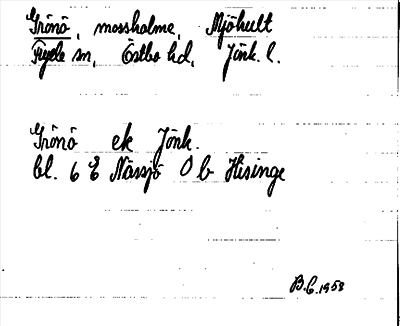 Grönö, mossholme, Mjöhult
Fryele sn, Östbo hd, Jönk. l.
Grönö ek Jönk.
bl. 6 E Nässjö O b Hisinge
B.C. 1953